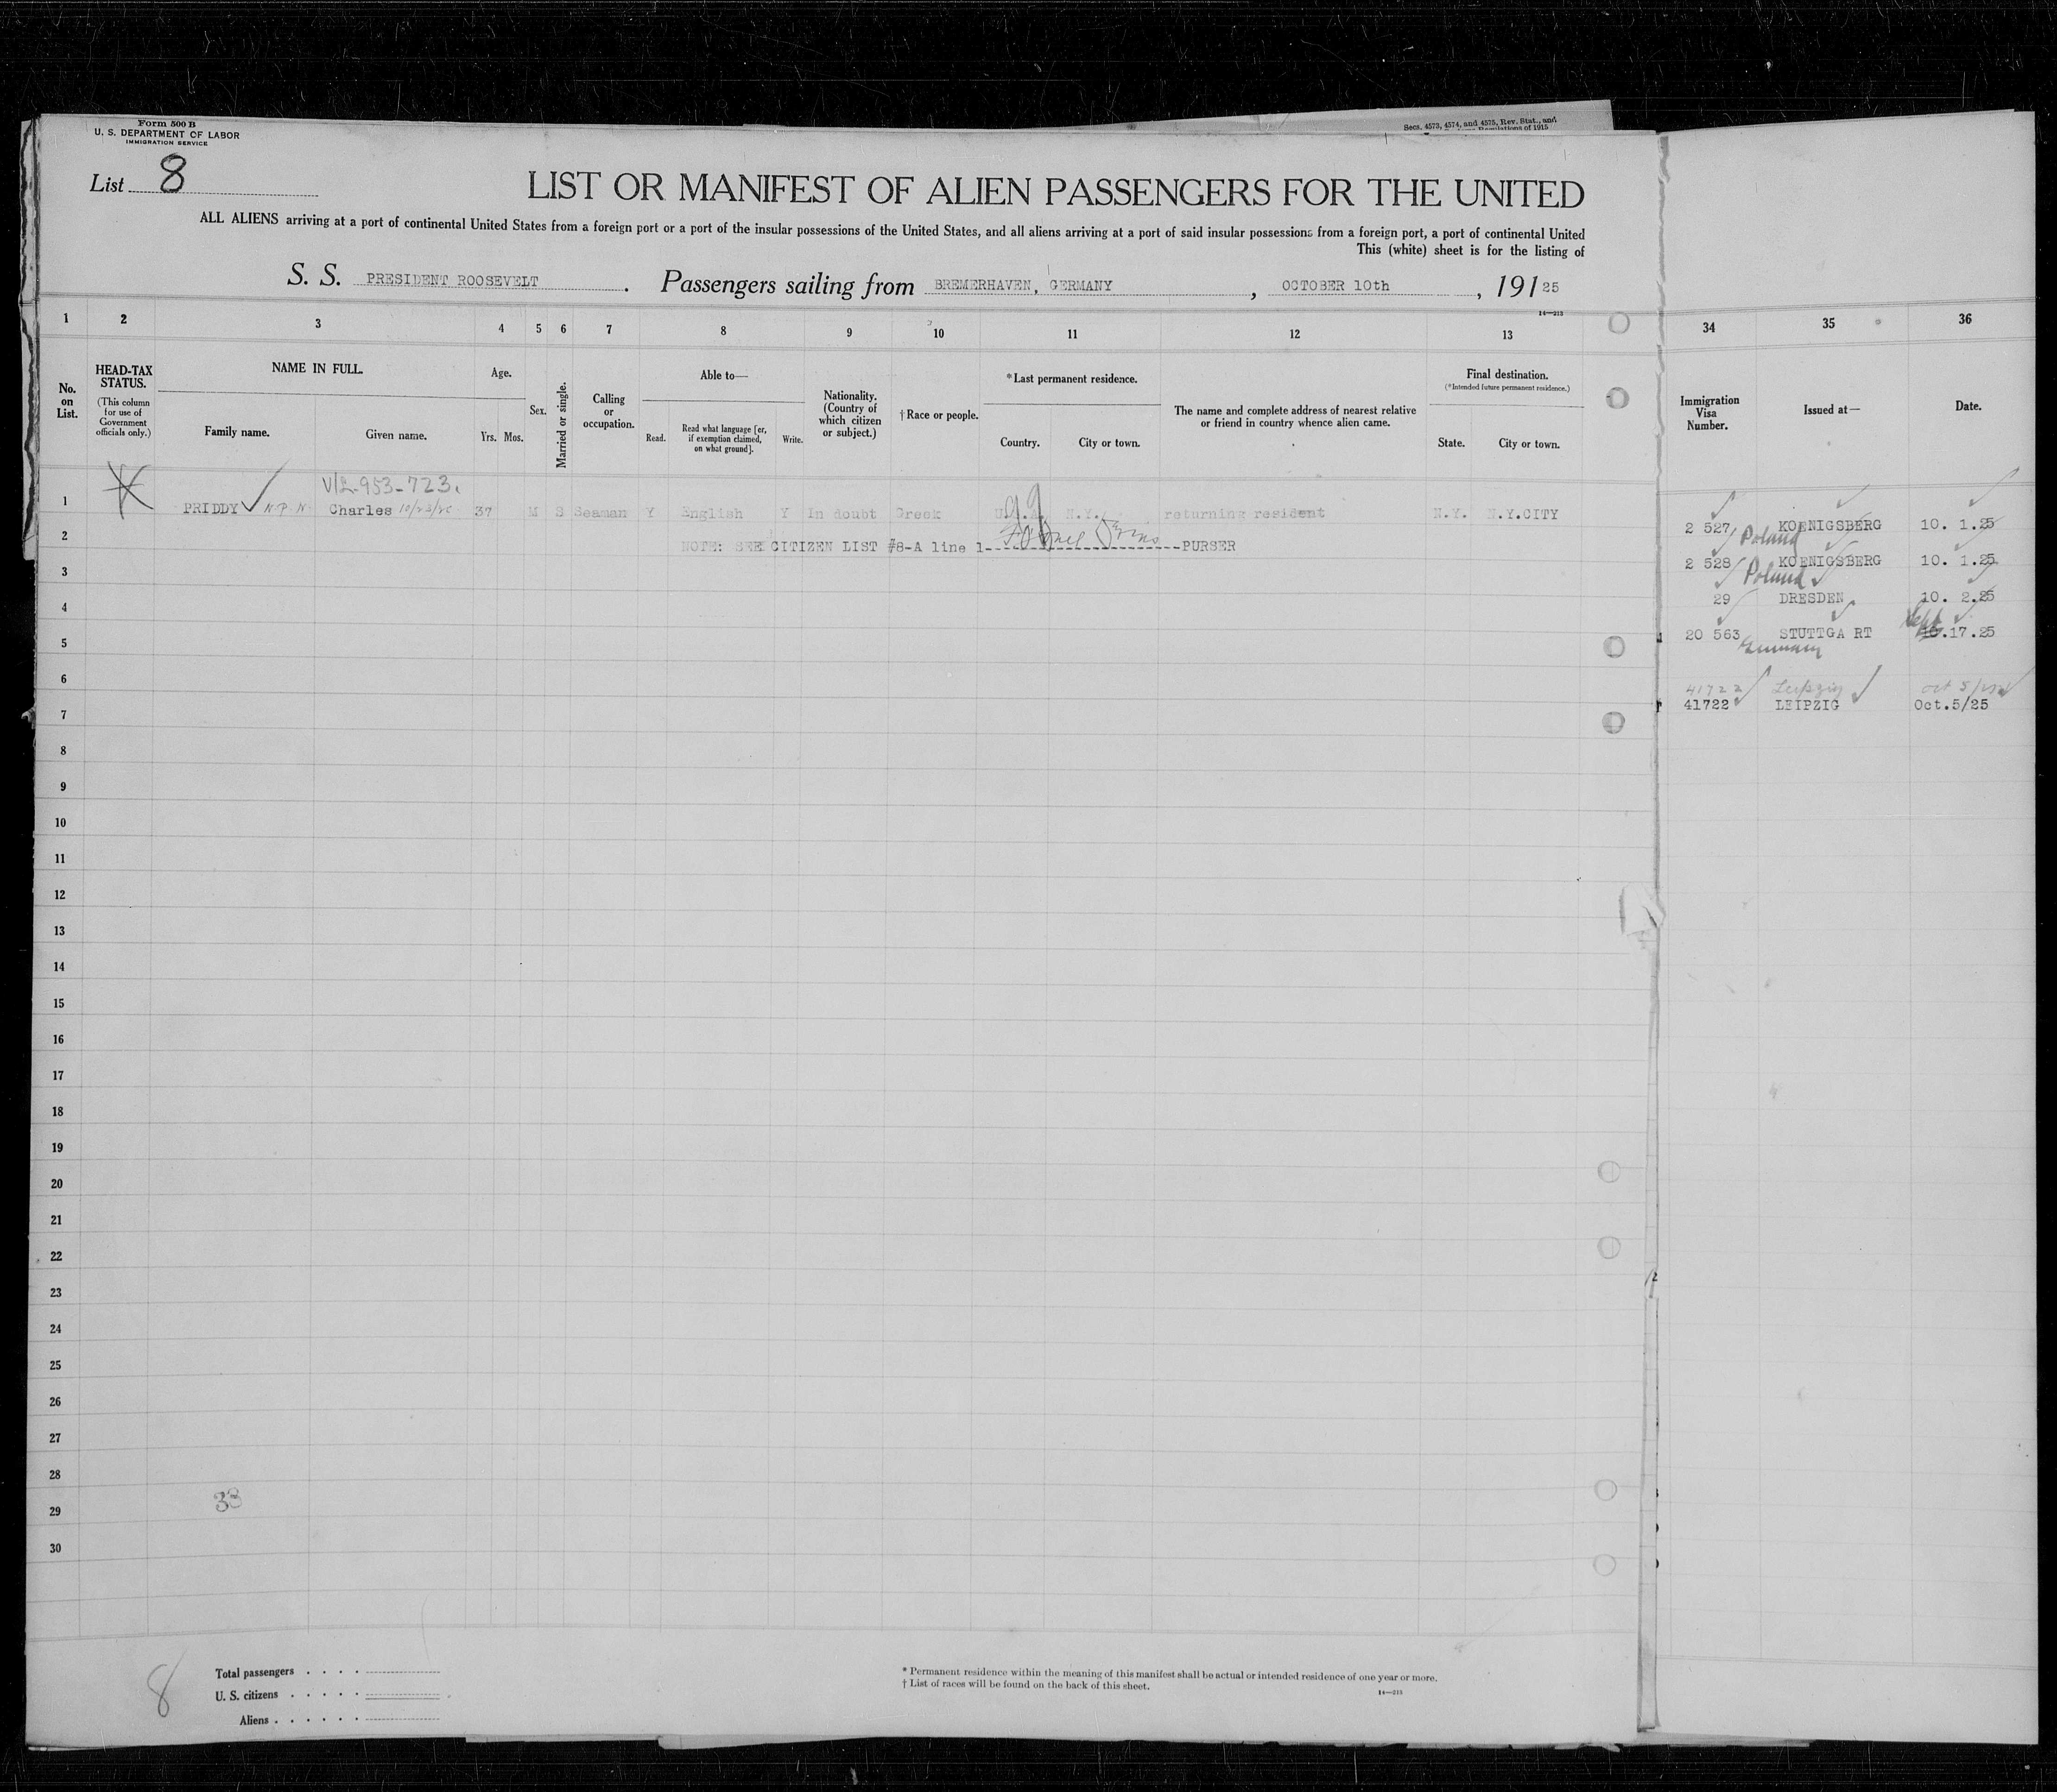 Form 500 B
U. S. DEPARTMENT OF LABOR
IMMIGRATION SERVICE
Secs. 4573, 4574, and 4575, Rev. Stat., and
Regulations of 1915
List 8
LIST OR MANIFEST OF ALIEN PASSENGERS FOR THE UNITED
ALL ALIENS arriving at a port of continental United States from a foreign port or a port of the insular possessions of the United States, and all aliens arriving at a port of said insular possessions from a foreign port, a port of continental United
This (white) sheet is for the listing of
S. S. PRESIDENT ROOSEVELT. Passengers sailing from BREMERHAVEN, GERMANY, OCTOBER 10th, 191 25
14—213
1 2 3 4 5 6 7 8 9 10 11 12 13 34 35 36
No. on List.
HEAD-TAX STATUS.
(This column for use of Government officials only.)
NAME IN FULL.
Family name. Given name.
Age.
Yrs. Mos.
Sex.
Married or single.
Calling or occupation.
Able to—
Read. Read what language [or, if exemption claimed, on what ground]. Write.
Nationality. (Country of which citizen or subject.)
† Race or people.
* Last permanent residence.
Country. City or town.
The name and complete address of nearest relative or friend in country whence alien came.
Final destination.
(* Intended future permanent residence.)
State. City or town.
Immigration Visa Number.
Issued at—
Date.
V/2-953-723.
1 PRIDDY N.P.N Charles 37 M S Seaman Y English Y In doubt Greek N.Y. returning resident N.Y. N.Y.CITY
2 NOTE: SEE CITIZEN LIST #8-A line 1 PURSER
3
4
5
6
7
8
9
10
11
12
13
14
15
16
17
18
19
20
21
22
23
24
25
26
27
28
29
30
2 527 KOENIGSBERG 10. 1.25
Poland
2 528 KOENIGSBERG 10. 1.25
Poland
29 DRESDEN 10. 2.25
Sept
20 563 STUTTGA RT 10.17.25
Germany
41722 Leipzig Oct 5/25
41722 LEIPZIG Oct.5/25
33
8
Total passengers
U. S. citizens
Aliens
* Permanent residence within the meaning of this manifest shall be actual or intended residence of one year or more.
† List of races will be found on the back of this sheet.
14—213